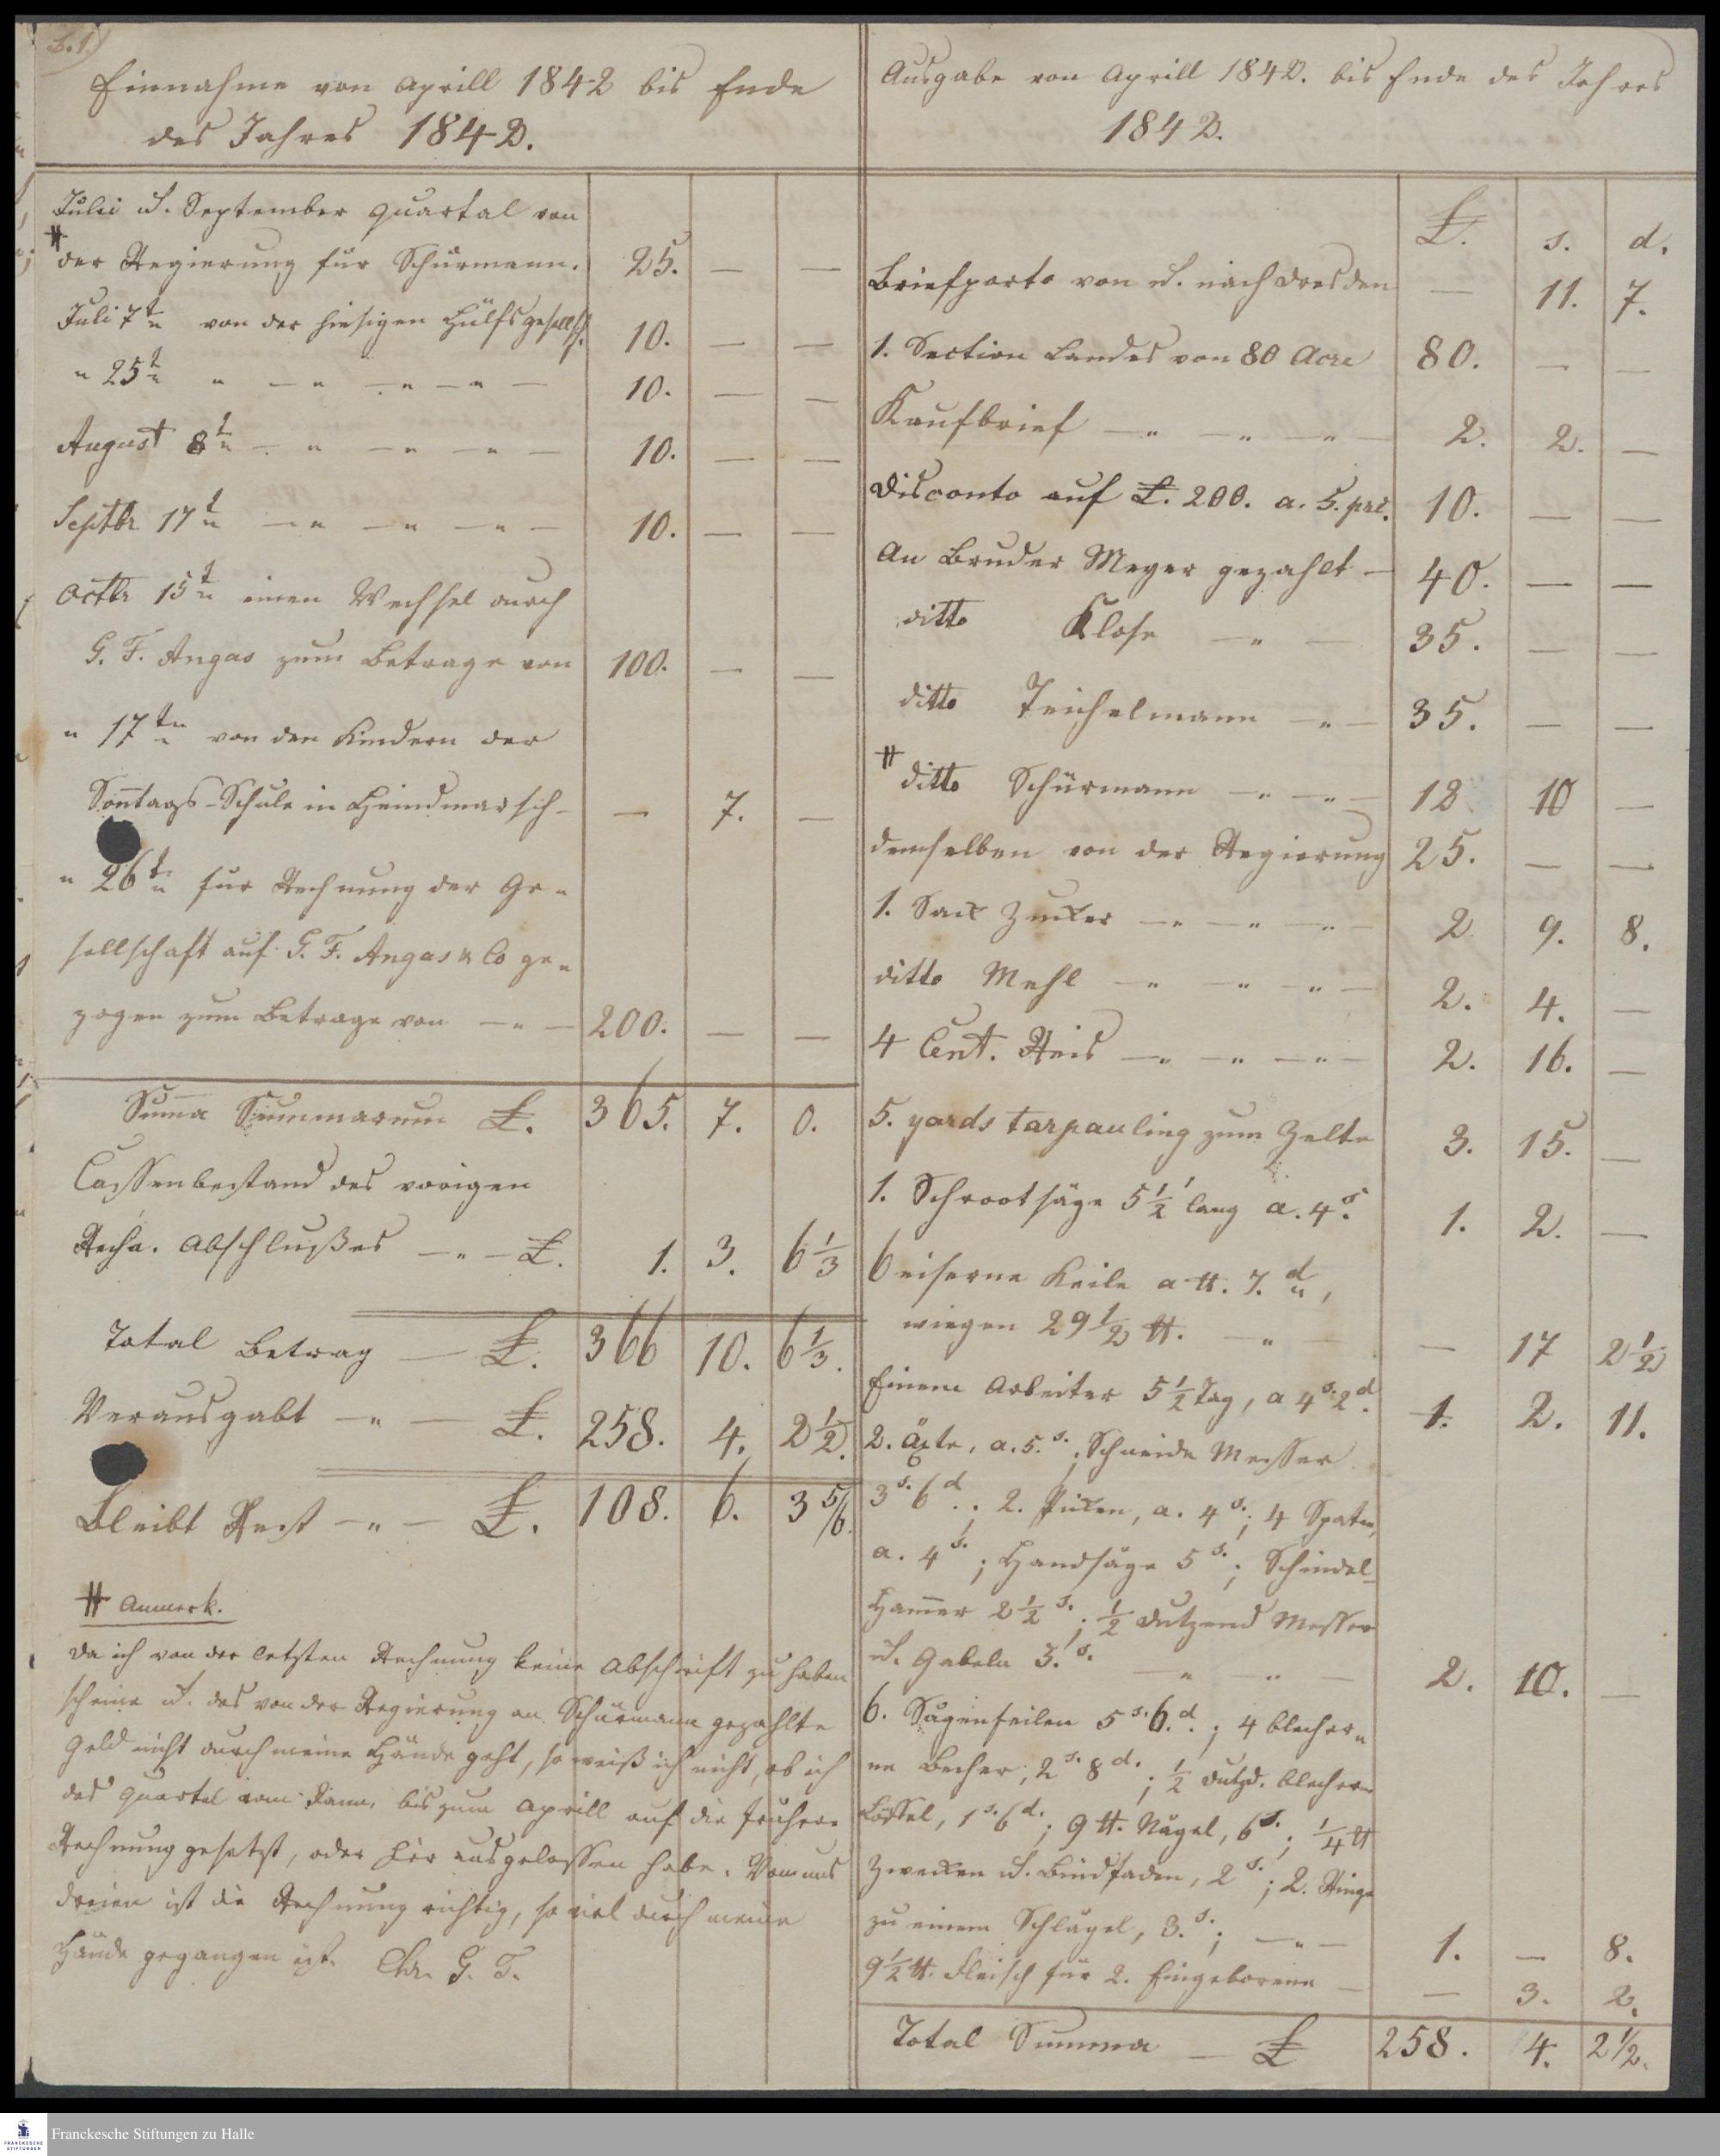 S. 1.)
Einnahme von Aprill 1842 bis Ende
des Jahres 1842.
Julii u. September Quartal von
# der Regierung für Schürmann. 25. — —
Juli 7t von der hiesigen Hülfsgesellsch. 10. — —
" 25t " — " — " — " — 10. — —
August 8t — " — " — " — 10. — —
Septbr 17t — " — " — " — 10. — —
Octbr 15t einen Wechsel durch
G. F. Angas zum Betrage von 100. — —
" 17ten von den Kindern der
Sonntags-Schule in Heindmarsch — — 7. —
" 26t für Rechnung der Ge-
sellschaft auf G. F. Angas & Co ge-
zogen zum Betrage von — " — 200. — —
Summa Summarum £. 365. 7. 0.
Cassenbestand des vorigen
Rechn. Abschlußes — " — £. 1. 3. 6 1/3
Total Betrag — £. 366 10. 6 1/3.
Verausgabt — " — £. 258. 4. 2 1/2.
Bleibt Rest — " — £. 108. 6. 3 5/6.
# Anmerk.
Da ich von der letzten Rechnung keine Abschrift zu haben
scheine u. das von der Regierung an Schürmann gezahlte
Geld nicht durch meine Hände geht, so weiß ich nicht, ob ich
das Quartal vom Jann. bis zum Aprill auf die frühere
Rechnung gesetzt, oder hier ausgelassen habe. Von uns
dreien ist die Rechnung richtig, so viel durch meine
Hände gegangen ist. Chr. G. T.
Ausgabe von Aprill 1842. bis Ende des Jahres
1842.
£. s. d.
Briefporto von u. nach Dresden — 11. 7.
1. Section Landes von 80 Acre 80. — —
Kaufbrief — " — " — " — 2. 2. —
Disconto auf £. 200. a. 5. prc. 10. — —
An Bruder Meyer gezahlt — 40. — —
ditto Klose — " — 35. — —
ditto Teichelmann — " — 35. — —
# ditto Schürmann — " — " — 12 10 —
demselben von der Regierung 25. — —
1. Sack Zucker — " — " — " — 2 9. 8.
ditto Mehl — " — " — " — 2. 4. —
4 Cent. Reis — " — " — " — 2. 16. —
5. yards tarpauling zum Zelte 3. 15. —
1. Schrootsäge 5 1/2' lang a. 4 s. 1. 2. —
6 eiserne Keile a ℔. 7. d,
wiegen 29 1/2 ℔. — " — — 17 2 1/2
Einem Arbeiter 5 1/2 Tag, a 4 s. 2 d. 1. 2. 11.
2. Äxte, a. 5. s.; Schneide Messer
3 s. 6 d.; 2. Picken, a. 4 s.; 4 Spaten,
a. 4 s.; Handsäge 5 s.; Schindel-
Hammer 2 1/2 s.; 1/2 Dutzend Messer
u. Gabeln 3. s. — " " — 2. 10. —
6. Sägenfeilen 5 s. 6. d.; 4 blecher-
ne Becher, 2 s. 8 d.; 1/2 Dutzd. blecherne
Löffel, 1 s. 6 d.; 9 ℔. Nägel, 6 s.; 1/4 ℔
Zwecken u. Bindfaden, 2 s.; 2. Ringe
zu einem Schlägel, 3. s.; — " — 1. — 8.
9 1/2 ℔. Fleisch für 2. Eingeborene — — 3. 2.
Total Summa — £ 258. 4. 2 1/2.
FRANCKESCHE STIFTUNGEN
Franckesche Stiftungen zu Halle